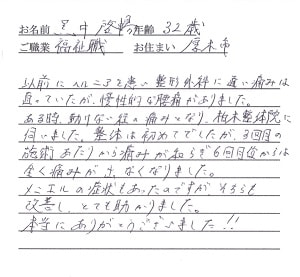 お名前 田中 啓時 年齢 32歳
ご職業 福祉職 お住まい 厚木市
以前にヘルニアを患い整形外科に通い痛みは
直っていたが、慢性的な腰痛がありました。
ある時、動けない程の痛みとなり、柏木整体院に
伺いました。整体は初めてでしたが、3回目の
施術あたりから痛みが和らぎ6回目後からは
全く痛みが出なくなりました。
メニエルの症状もあったのですがそちらも
改善し、とても助かりました。
本当にありがとうございました!!